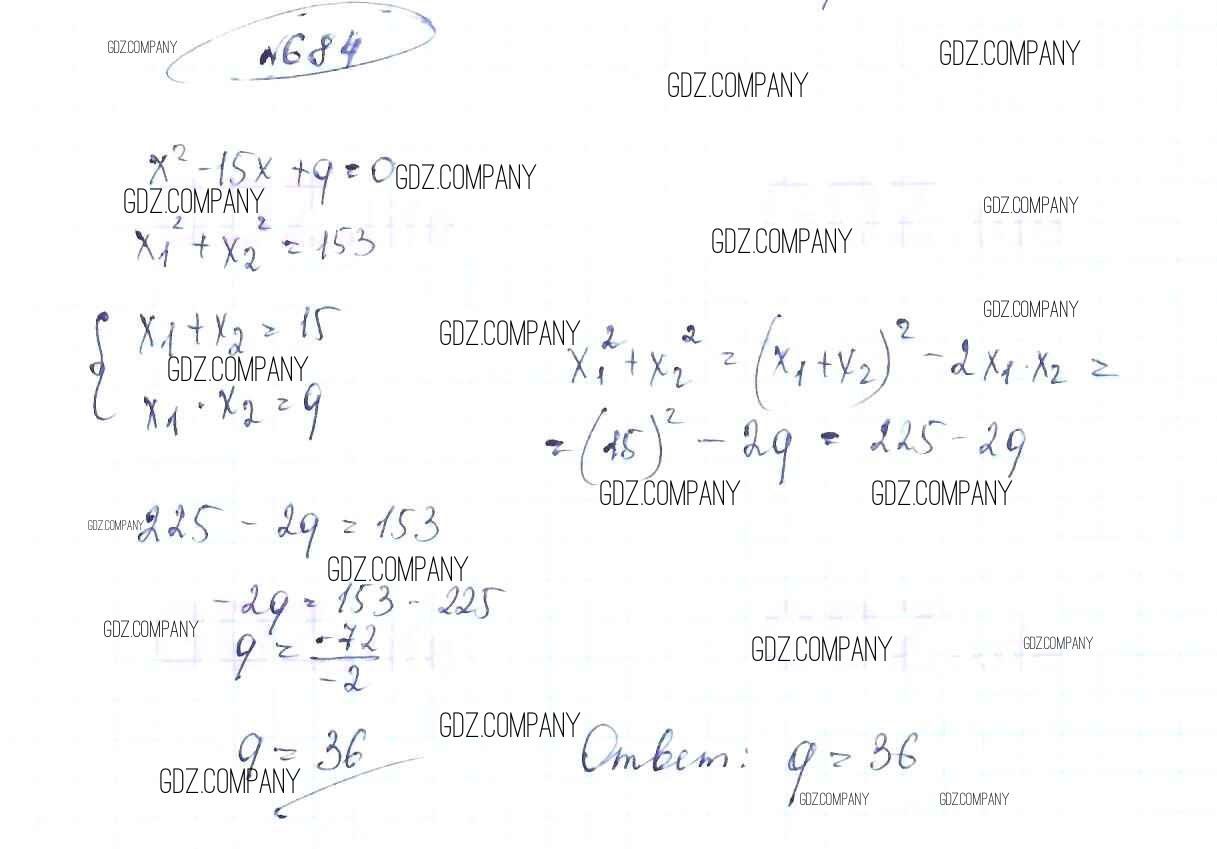 GDZ.COMPANY
№684
GDZ.COMPANY
GDZ.COMPANY
x² - 15x + q = 0
GDZ.COMPANY
GDZ.COMPANY
GDZ.COMPANY
x₁² + x₂² = 153
GDZ.COMPANY
GDZ.COMPANY
{ x₁ + x₂ = 15
GDZ.COMPANY
GDZ.COMPANY
x₁ · x₂ = q
x₁² + x₂² = (x₁ + x₂)² - 2x₁·x₂ =
= (15)² - 2q = 225 - 2q
GDZ.COMPANY
GDZ.COMPANY
GDZ.COMPANY
225 - 2q = 153
GDZ.COMPANY
-2q = 153 - 225
GDZ.COMPANY
q = -72/-2
GDZ.COMPANY
GDZ.COMPANY
GDZ.COMPANY
q = 36
Ответ: q = 36
GDZ.COMPANY
GDZ.COMPANY
GDZ.COMPANY